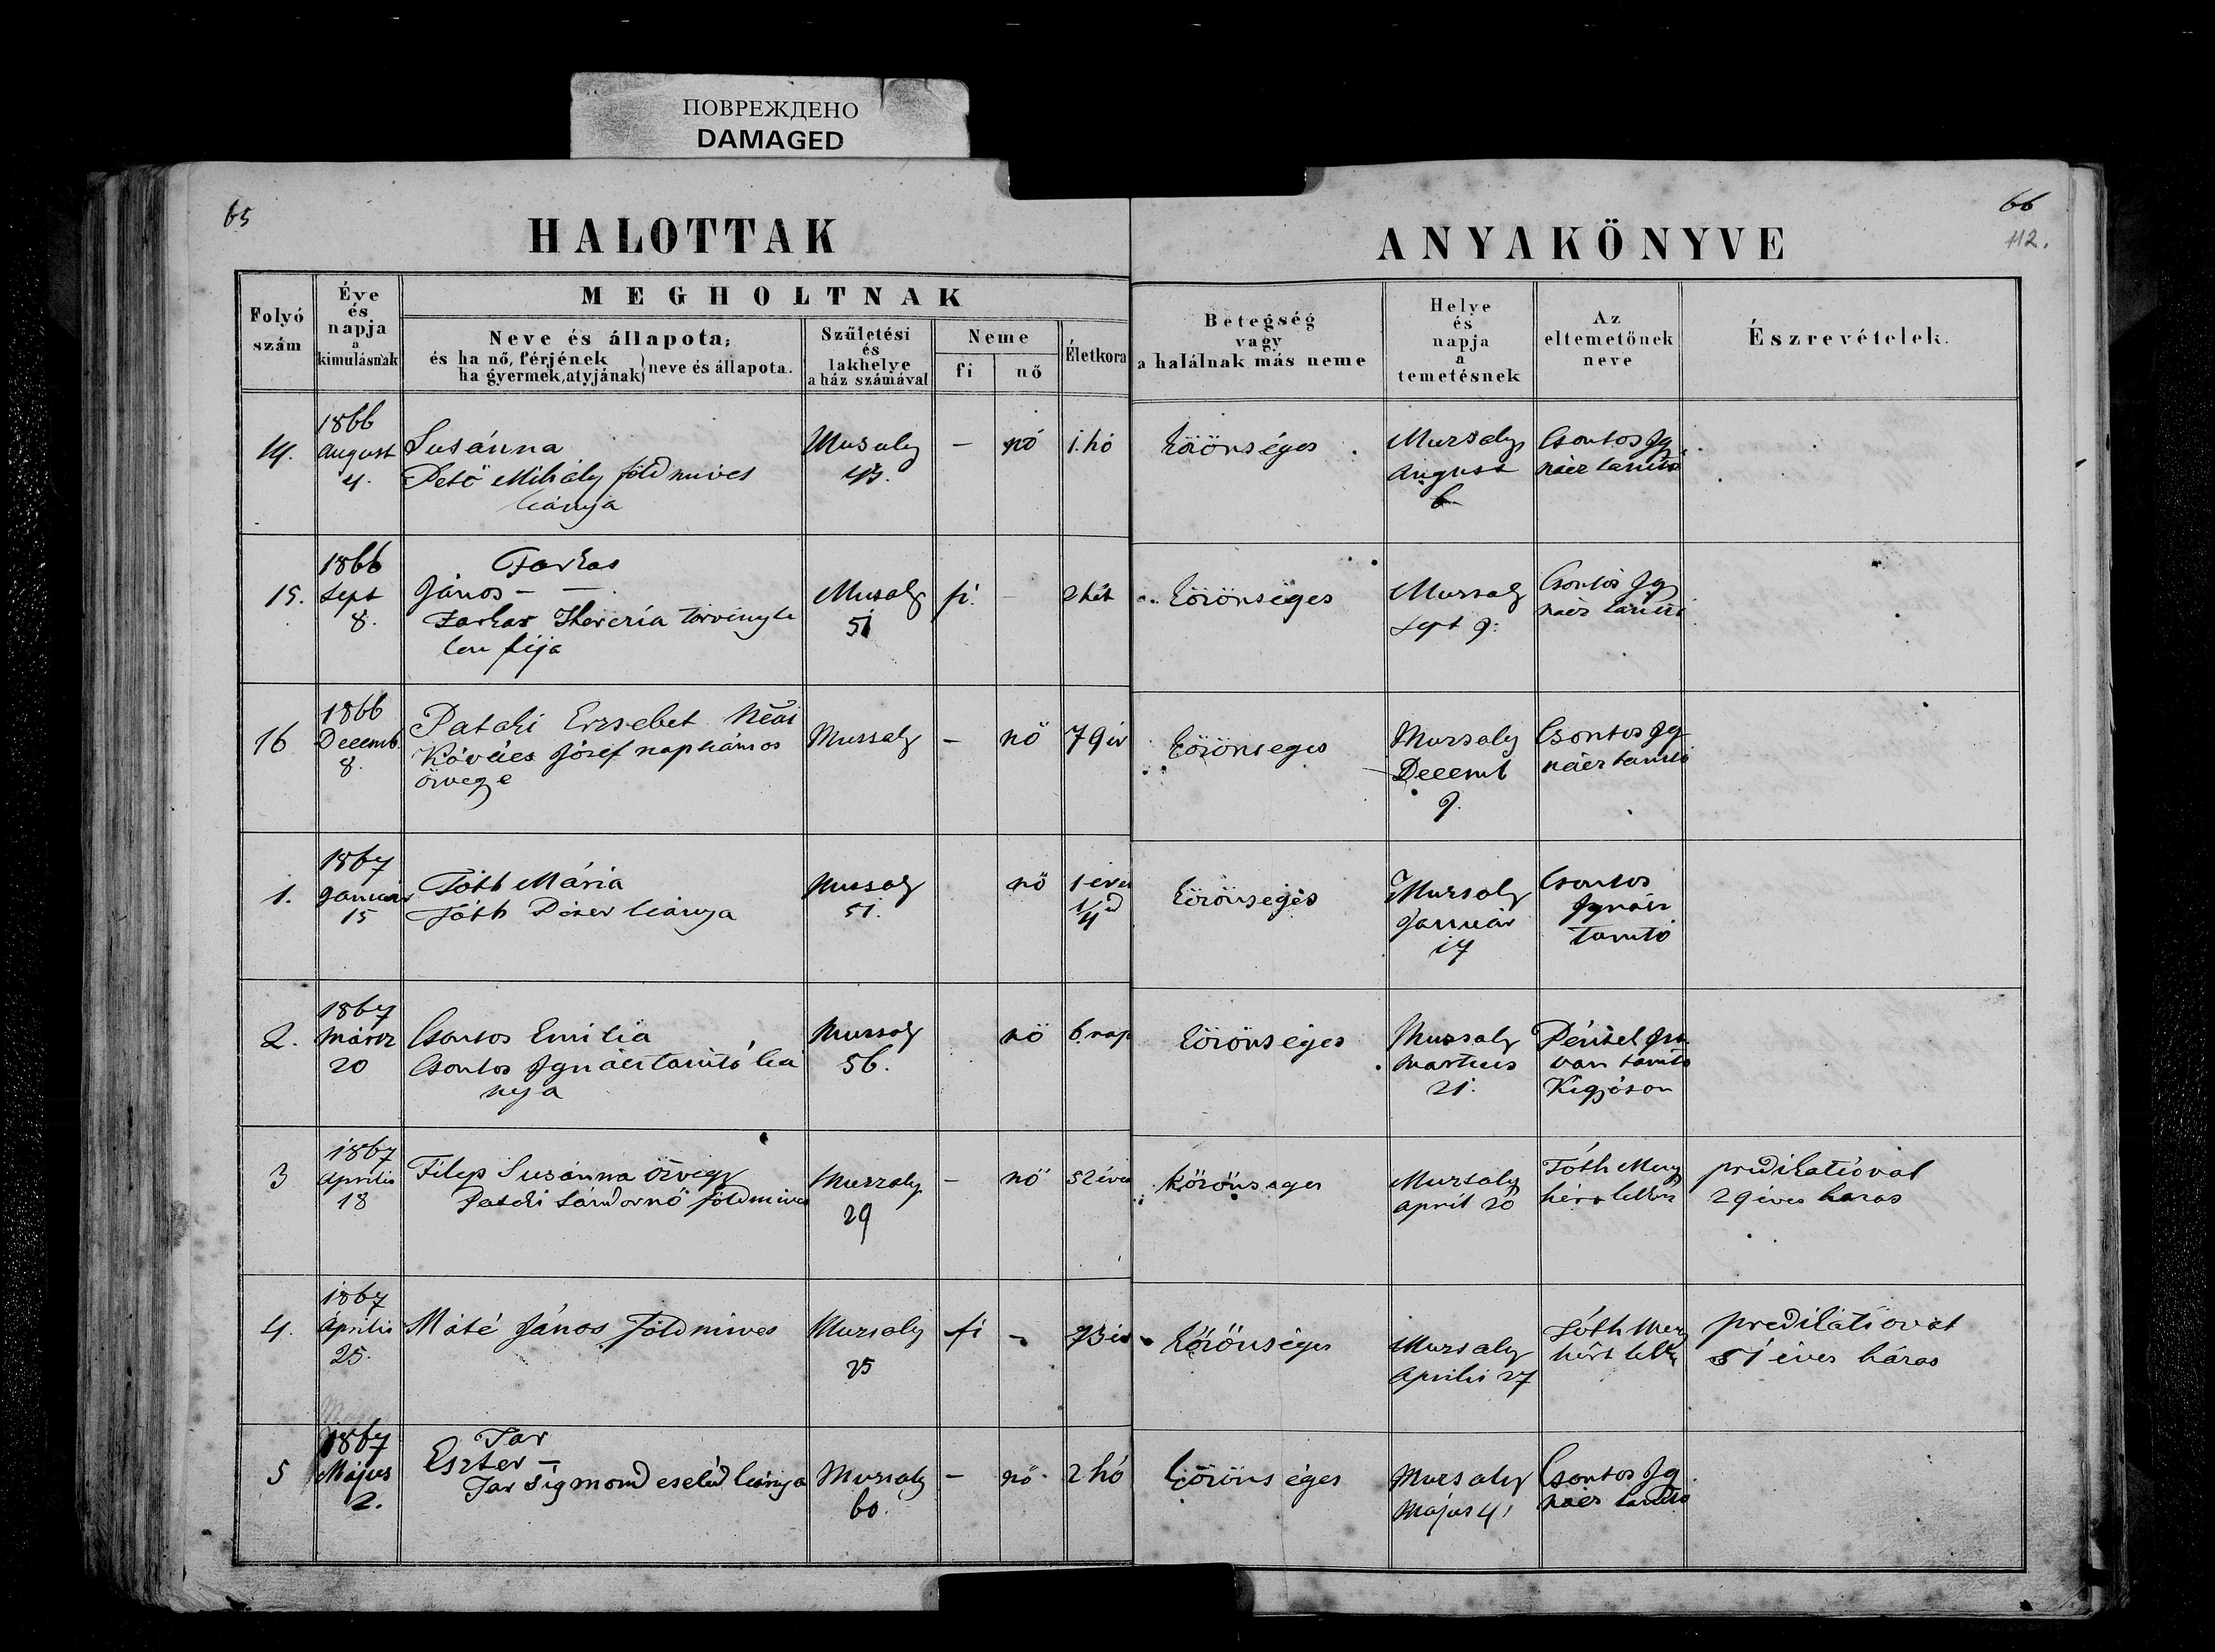 ПОВРЕЖДЕНО
DAMAGED
65
66
112.
HALOTTAK
ANYAKÖNYVE
Folyó
szám
Éve
és
napja
a
kimulásnak
MEGHOLTNAK
Neve és állapota;
és ha nő, férjének
ha gyermek, atyjának} neve és állapota.
Születési
és
lakhelye
a ház számával
Neme
fi
nő
Életkora
Betegség
vagy
a halálnak más neme
Helye
és
napja
a
temetésnek
Az
eltemetőnek
neve
Észrevételek.
14.
1866
August
4.
Susánna
Pető Mihály földmives
leánya
Musaly
-
nő
1. hó
közönséges
Mursaly
August
6
Csontos Ig
nácz tanitó
15.
1866
Sept
8.
Farkas
János -
Farkas Therezia törvényte
len fija
Musaly
51
fi.
2 hét
közönséges
Mussaly
Sept 9.
Csontos Ig
nácz tanitó
16
1866
Decemb
8.
Pataki Erzsebet néhai
Kovács József napszámos
özvegye
Mussaly
-
nő
79 év
közönseges
Mursaly
Decemb
9.
Csontos Ig
nácz tanitó
1.
1867
Január
15
Tóth Mária
Tóth Péter leánya
Mussaly
51.
nő
1 éves
1/4d
közönséges
Mursaly
Január
17
Csontos
Ignácz
tanitó
2.
1867
Márcz
20
Csontos Emilia
Csontos Ignácz tanitó leá
nya
Mussaly
56.
nő
6 nap
közönséges
Mussaly
Martius
21.
István tanitó
Kigyóson
3
1867
Aprilis
18
Filep Susánna özvegy
Pataki Sándornő földmives
Mussaly
29
-
nő
52 éves
közönseges
Mursaly
April 20
Tóth Meny
hért lelkész
predikatióval
29 éves házas
4.
1867
Április
25.
Máté János földmives
Mursaly
25
fi
-
73 év
közönséges
Mursaly
Aprilis 27
Tóth Meny
hért lelkész
predikatióval
51 éves házas
5
1867
Május
2.
Tar
Eszter -
Tar Sigmond cseléd leánya
Mursaly
60.
-
nő
2 hó
közönséges
Mursaly
Május 4
Csontos Ig
nácz tanitó